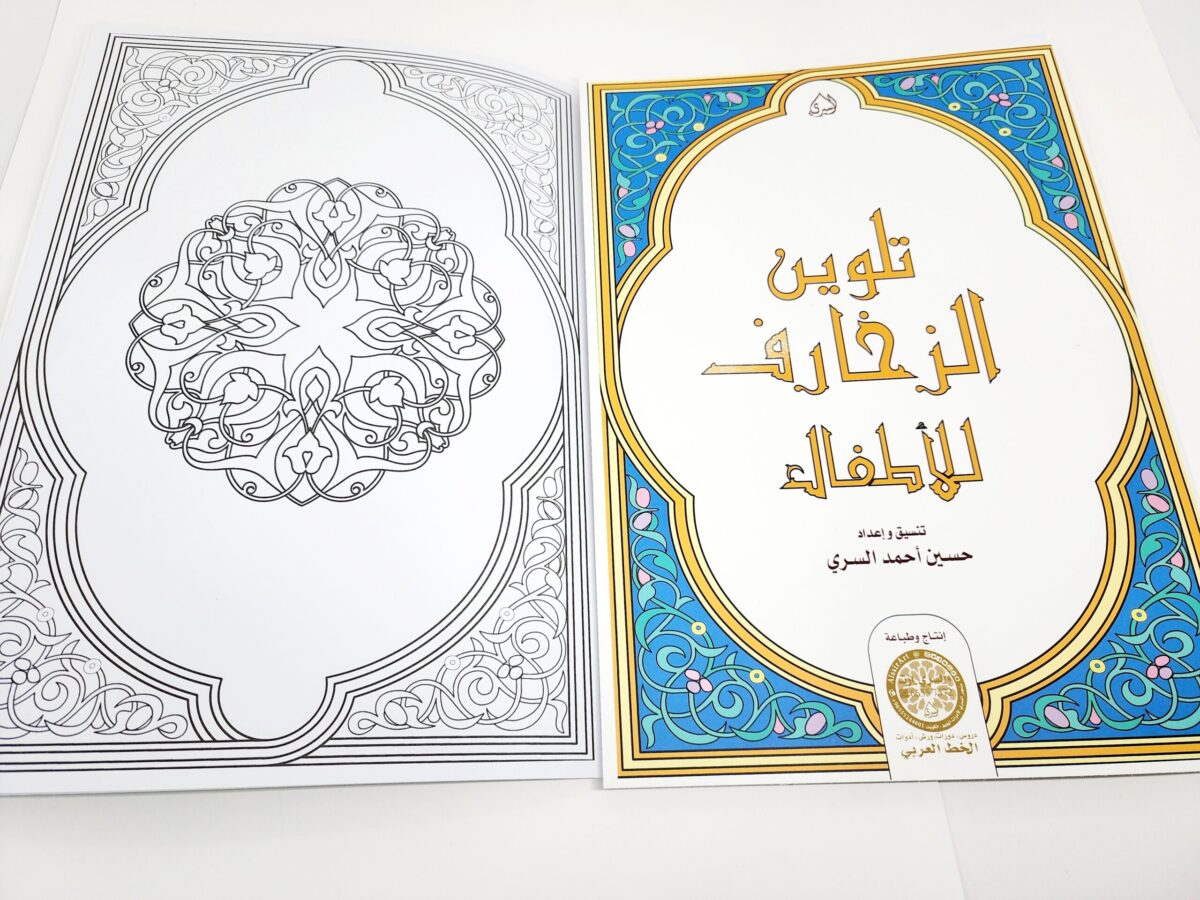 السري
تلوين
الزخارف
للأطفال
تنسيق وإعداد
حسين أحمد السري
إنتاج وطباعة
AlisirArt @
السري
دروس، دورات، ورش، أدوات
الخط العربي